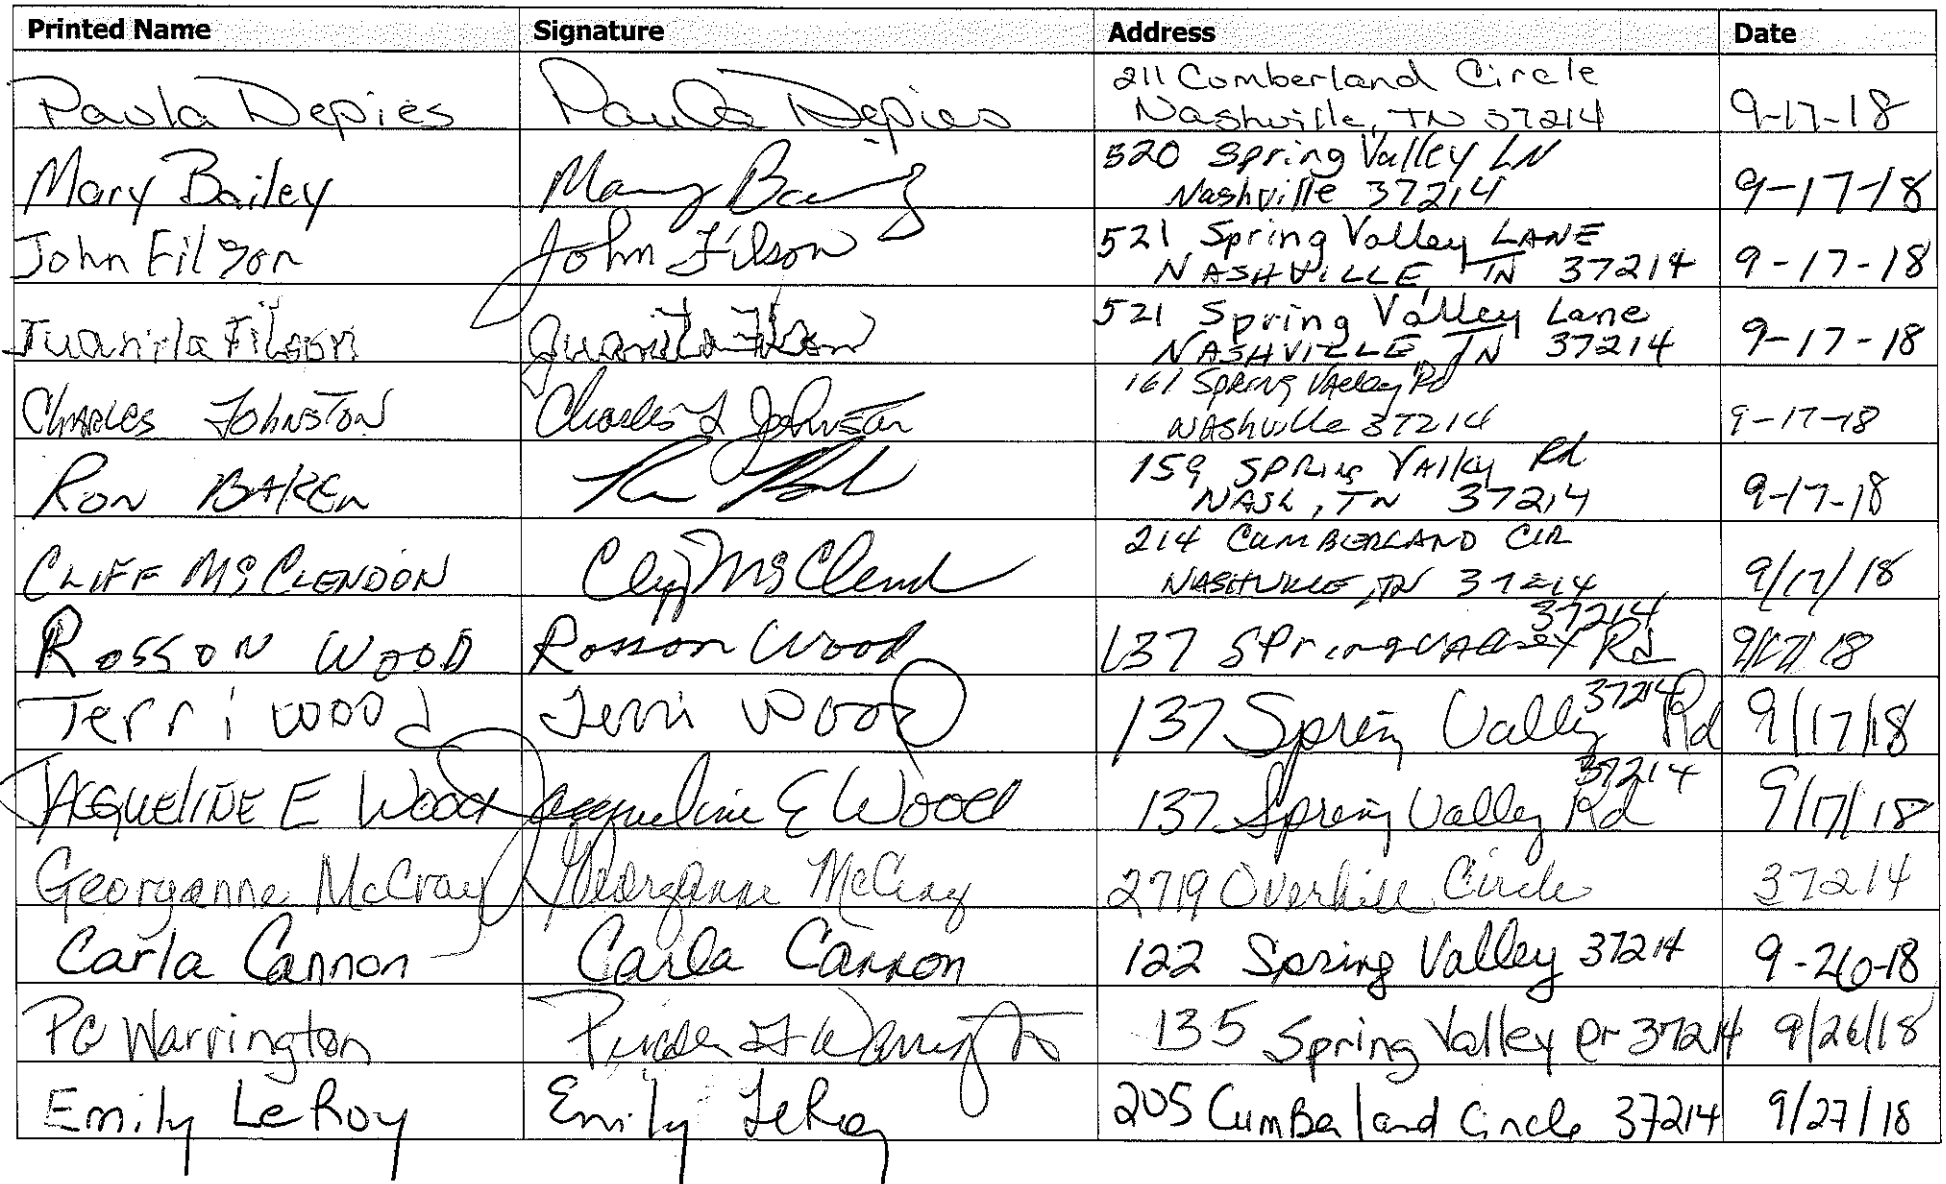 Printed Name Signature Address Date
Paula Depies Paula Depies 211 Cumberland Circle
Nashville, TN 37214 9-17-18
Mary Bailey Mary 520 Spring Valley LN
Nashville 37214 9-17-18
John Filson John Filson 521 Spring Valley LANE
NASHVILLE TN 37214 9-17-18
Juanita Filson Juanita Filson 521 Spring Valley Lane
NASHVILLE, TN 37214 9-17-18
CHARLES JOHNSTON Charles L Johnston 161 Spring Valley Rd
NAShville 37214 9-17-18
RON BAKER 159 SPRing VAlley Rd
NASH, TN 37214 9-17-18
CLIFF McCLENDON Cliff McClend 214 CUMBERLAND CIR
NASHVILLE, TN 37214 9/17/18
37214
ROSSON WOOD Rosson Wood 137 SPring VALLEY Rd 9/17/18
37214
Terri wood Terri Wood 137 Spring Valley Rd 9/17/18
37214
JACQUELINE E Wood Jacqueline E Wood 137 Spring Valley Rd 9/17/18
Georganne McCray Georganne McCray 2719 Overhill Circle 37214
Carla Cannon Carla Cannon 122 Spring Valley 37214 9-26-18
PG Warrington Warrington 135 Spring Valley Dr 37214 9/26/18
Emily LeRoy Emily LeRoy 205 Cumberland Circle 37214 9/27/18